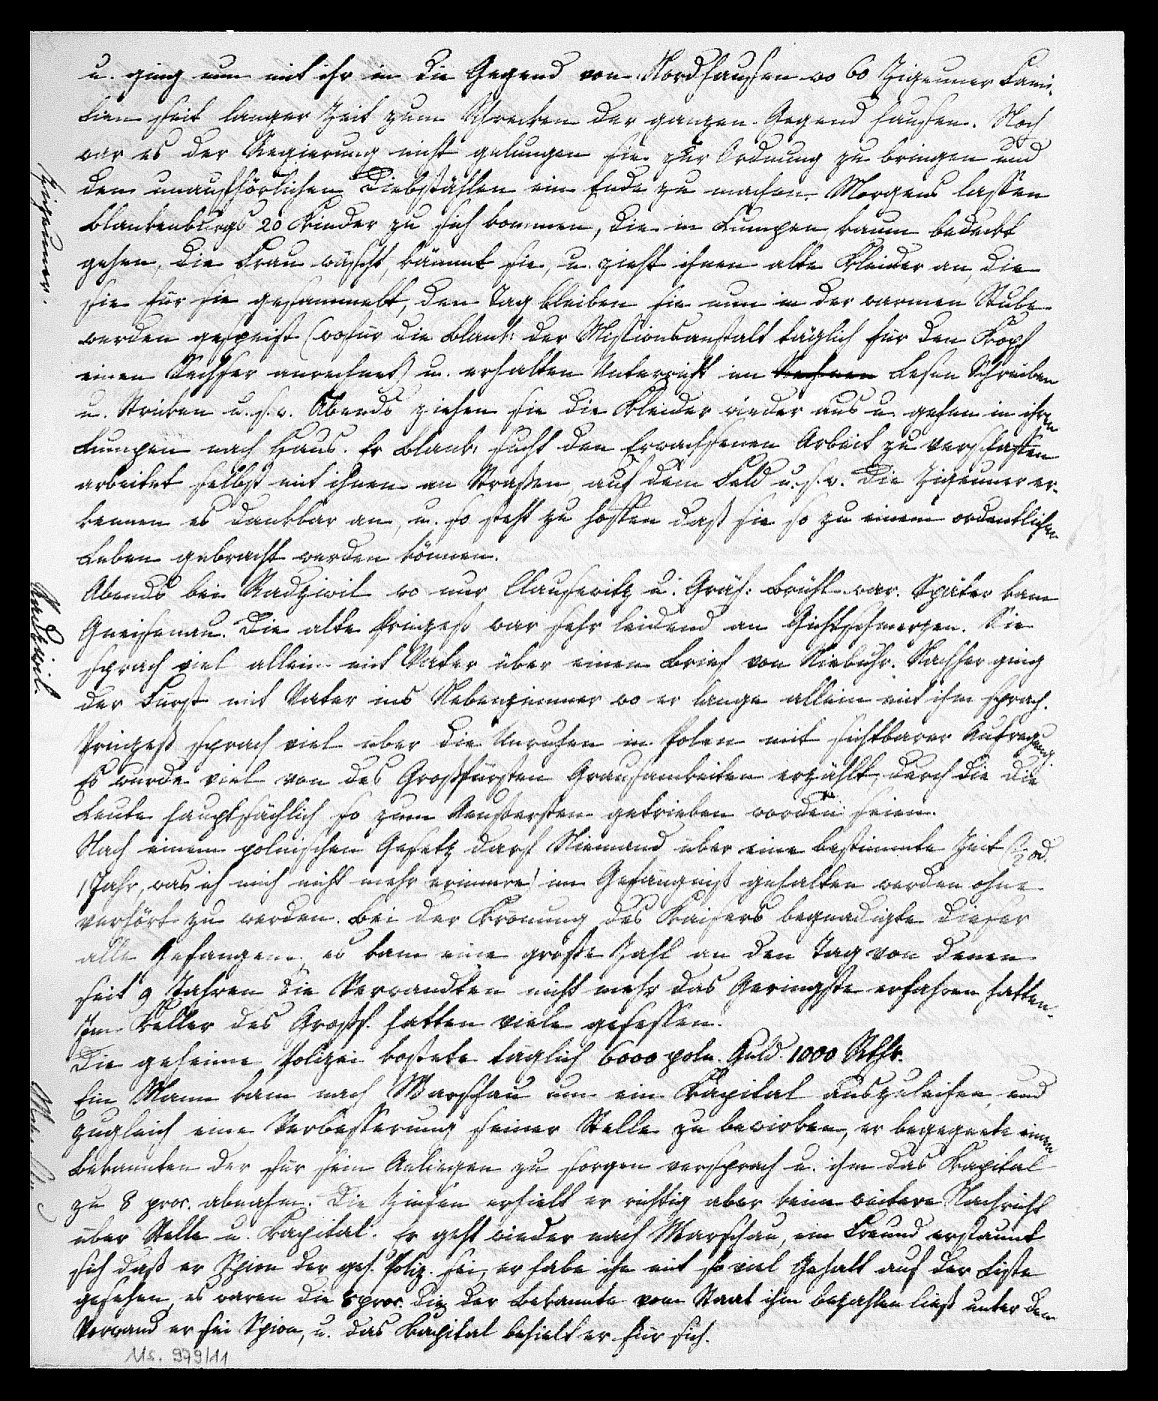 u. ging nun mit ihr in die Gegend von Nordhausen wo 60 Zigeuner Fami-
lien seit langer Zeit zum Schrecken der ganzen Gegend hausen. Noch
war es der Regierung nicht gelungen sie zur Ordnung zu bringen und
den unaufhörlichen Diebstählen ein Ende zu machen. Morgens lassen
Blankenburgs 20 Kinder zu sich kommen, die in Lumpen kaum bedeckt
gehen, die Frau wäscht, kämmt sie, u. zieht ihnen alte Kleider an, die
Zigeuner.
sie für sie gesammelt, den Tag bleiben sie nun in der warmen Stube
werden gespeist (wofür die Blank: der Missionsanstalt täglich für den Kopf
einen Sechser anrechnet) u. erhalten Unterricht im Lesen Schreiben
u. Stricken u. s. w. Abends ziehen sie die Kleider wieder aus u gehen in ihren
Lumpen nach Haus. Er Blank: sucht den Erwachsenen Arbeit zu verschaffen
arbeitet selbst mit ihnen an Straßen auf dem Feld u. s. w. Die Zigeuner er-
kennen es dankbar an, u. so steht zu hoffen daß sie so zu einem ordentlichen
Leben gebracht werden können.
Radziwil.
Abends bei Radziwil wo nur Clausewitz u. Gräf: Brühl war. Später kam
Gneisenau. Die alte Prinzeß war sehr leidend an Gichtschmerzen. Sie
sprach viel allein mit Vater über einen Brief von Niebuhr. Nachher ging
der Fürst mit Vater ins Nebenzimmer wo er lange allein mit ihm sprach.
Prinzeß sprach viel über die Unruhen in Polen mit sichtbarer Aufregung.
Es wurde viel von des Großfürsten Grausamkeiten erzählt, durch die die
Leute hauptsächlich so zum Aeußersten getrieben worden seien.
Nach einem polnischen Gesetz darf Niemand über eine bestimmte Zeit od.
1 Jahr, was ich mich nicht mehr erinnere) im Gefängniß gehalten werden ohne
verhört zu werden. Bei der Krönung des Kaisers begnadigte dieser
alle Gefangene, es kam eine große Zahl an den Tag von denen
seit 9 Jahren die Verwandten nicht mehr das Geringste erfahren hatten.
Im Keller des Großf. hatten viele gesessen.
Die geheime Polizei kostete täglich 6000 poln. Guld. 1000 Rthlr.
Ein Mann kam nach Warschau um ein Kapital auszuleihen und
zugleich eine Verbesserung seiner Stelle zu bewirken, er begegnete einem
Bekannten der für sein Anliegen zu sorgen versprach u. ihm das Kapital
zu 8 proc. abnahm. Die Zinsen erhielt er richtig aber keine weitere Nachricht
über Stelle u. Kapital. Er geht wieder nach Warschau, ein Freund erstaunt
sich daß er Spion der geh. Poliz. sei, er habe ihn mit so viel Gehalt auf der Liste
gesehen, es waren die 8 proc. die der Bekannte vom Staat ihm bezahlen ließ unter dem
Vorwand er sei Spion, u. das Kapital behielt er für sich.
Ms. 979/11